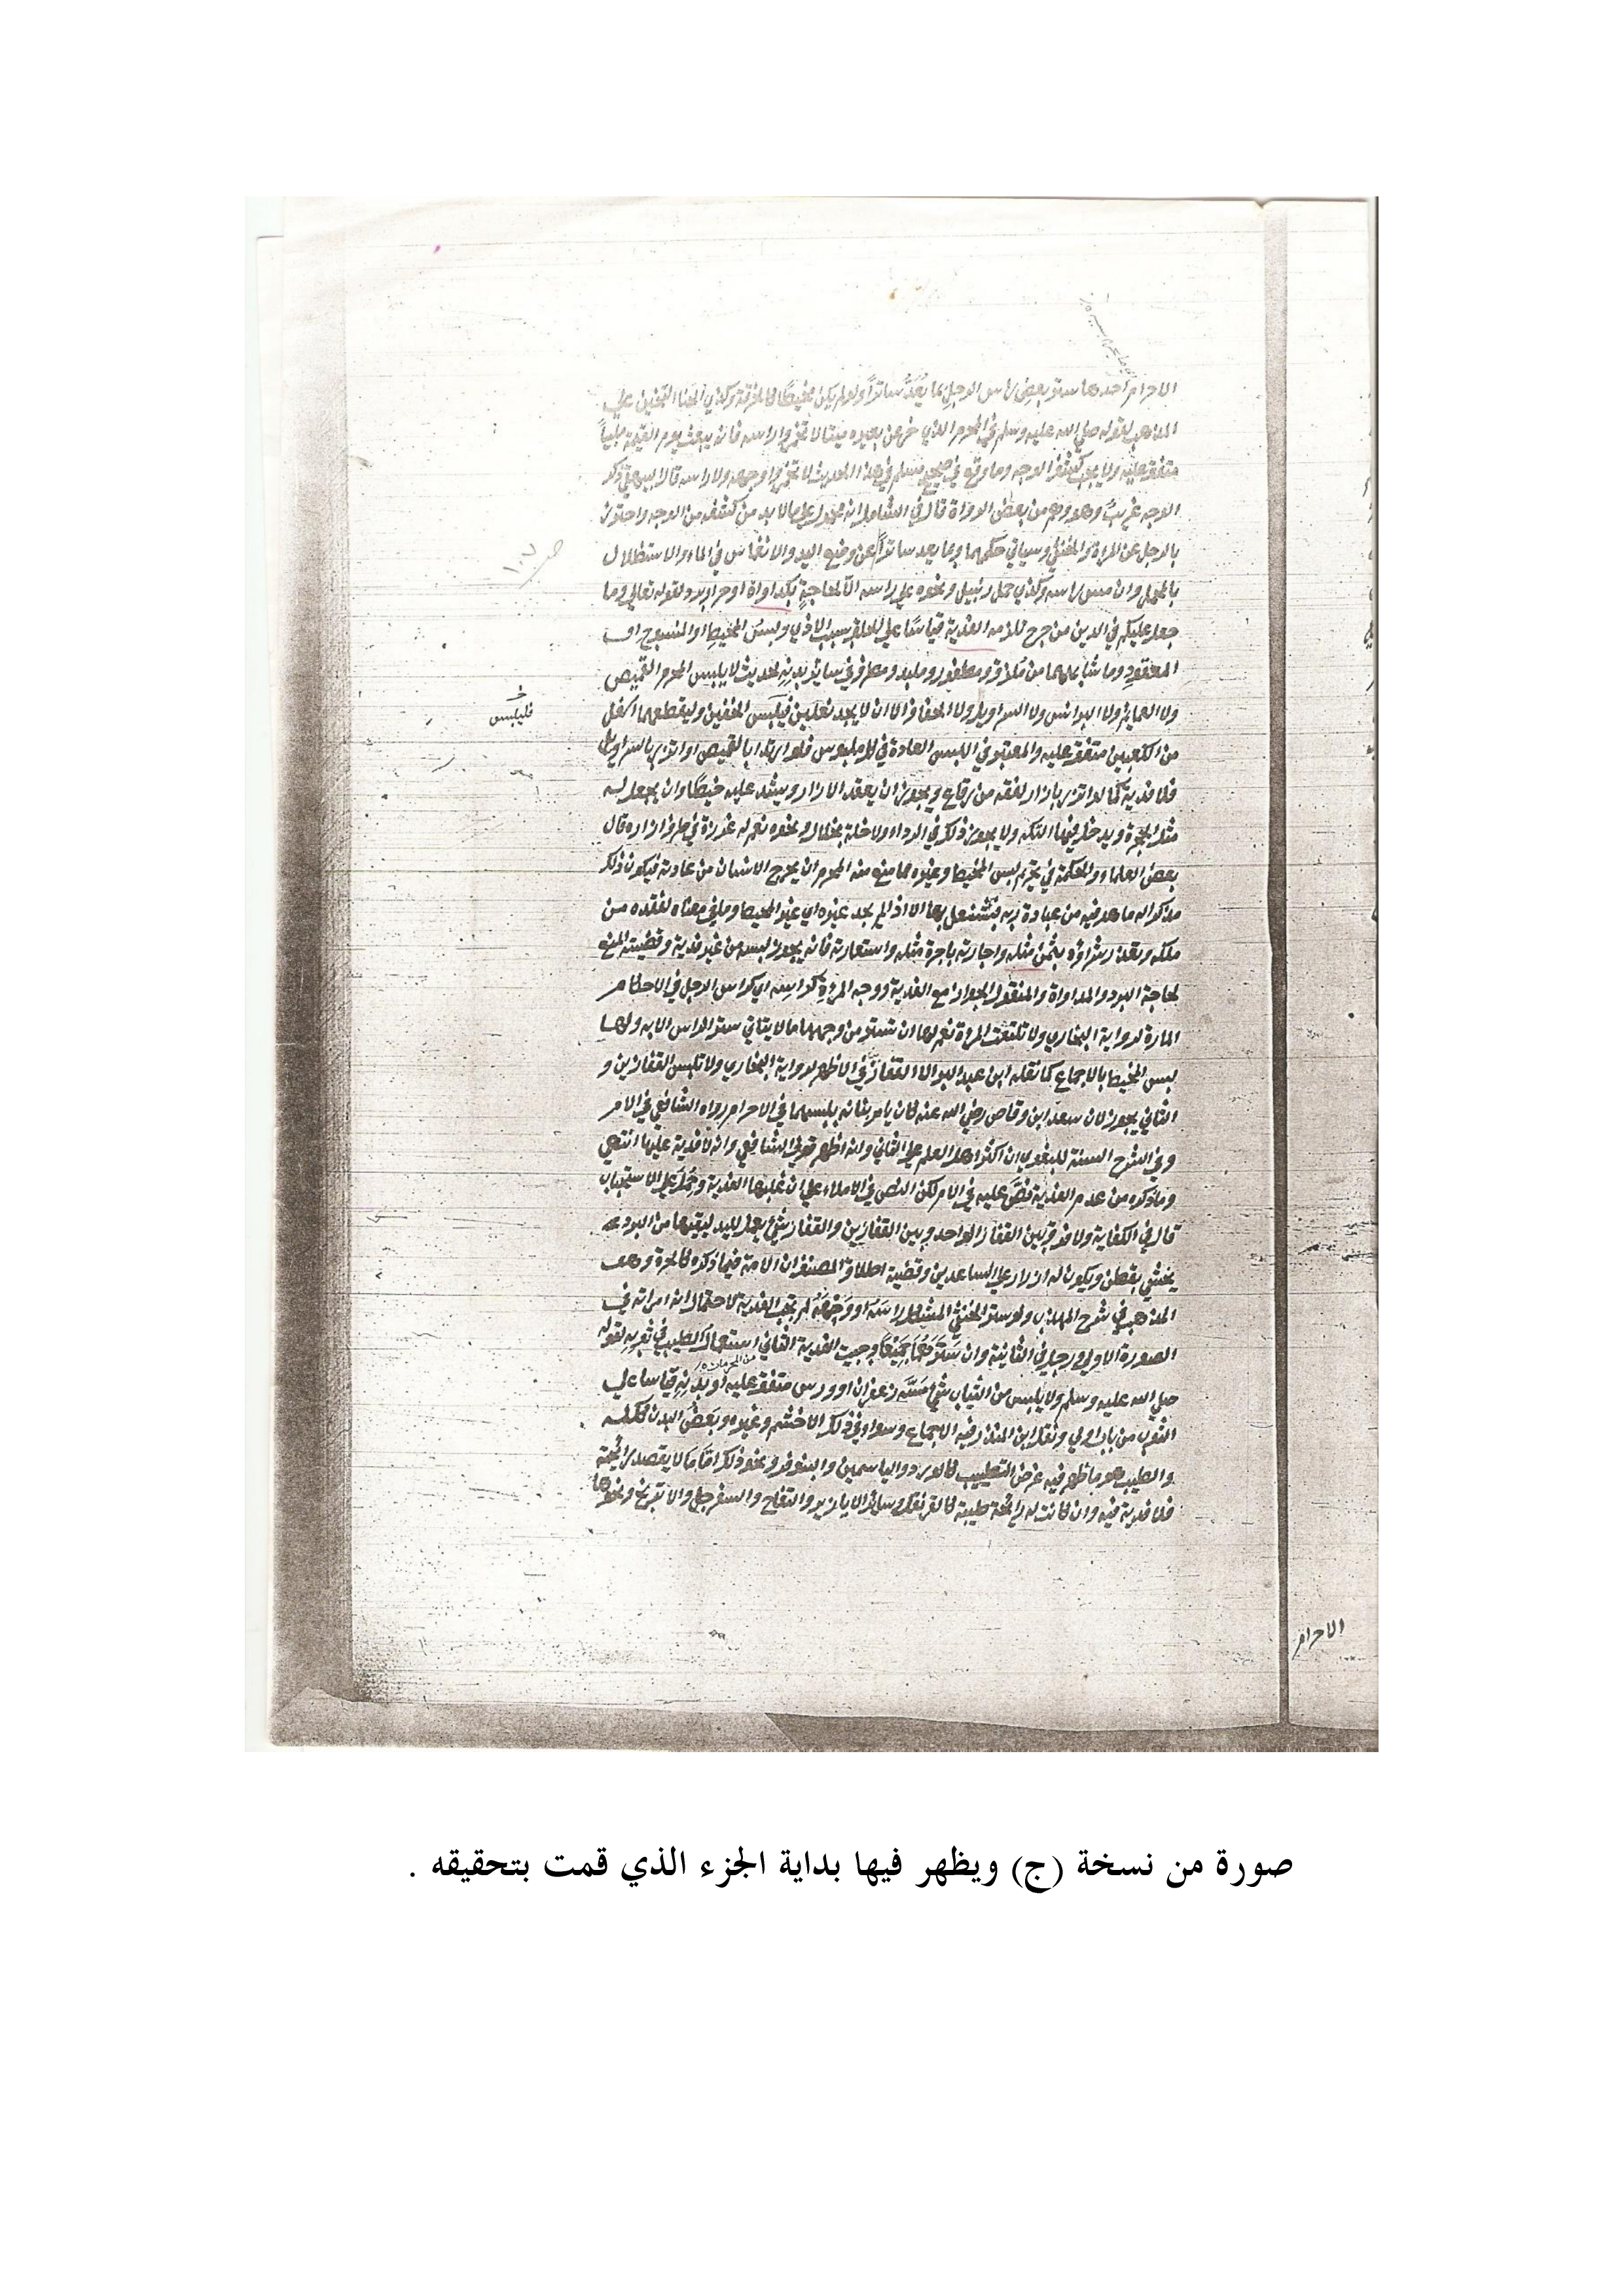 الاحرام احدها ستر بعض راس الرجل بما يعد ساترا ولو لم يكن مخيطا كالخرقة وكذي الحنا الثخين علي
المذهب لقوله صلي الله عليه وسلم في المحرم الذي خر عن بعيره ميتا لا تخمروا راسه فانه يبعث يوم القيمة ملبياً
متفق عليه ولا يجب كشف الوجه وما وقع في صحيح مسلم في هذا الحديث لا تخمروا وجهه ولا راسه قال البيهقي ذكر
الوجه غريب وهو وهم من بعض الرواة قال في الشامل انه محمول علي ما لا بد من كشفه من الوجه واحترز
بالرجل عن المراة والخنثي وسياتي حكمهما وبما يعد ساتراً عن وضع اليد والانغماس في الماء والاستظلال
بالمحمل وان مس راسه وكذي حمل زنبيل ونحوه علي راسه الا لحاجةٍ كمداواة او حر او برد لقوله تعالي وما
جعل عليكم في الدين من حرج تلزمه الفدية قياسا علي الحلق بسبب الاذي ولبس المخيط او المنسوج او
المعقود وما شابههما من ملزق ومظفور وملبد ومطرق في سائر بدنه لحديث لا يلبس المحرم القميص
ولا العمايم ولا البرانس ولا السراويل ولا الخفاف الا ان لا يجد نعلين فيلبس الخفين وليقطعهما اسفل
فليلبس خ
من الكعبين متفق عليه والمعتبر في اللبس العادة في كل ملبوس فلو ارتدا بالقميص او اتزر بالسراويل
فلا فدية كما لو اتزر بازار لفقه من رقاع ويجوز ان يعقد الازار ويشد عليه خيطا وان يجعل له
مثل الحجزة ويدخل فيها التكه ولا يجوز ذلك في الرداء ولا خله بخلال ونحوه نعم له غرزة في طرف ازاره قال
بعض العلماء والحكمة في تحريم لبس المخيط وغيره مما منع منه المحرم ان يخرج الانسان من عادته فيكون ذلك
مذكرا له ما هو فيه من عبادة ربه فيشتغل بها الا اذا لم يجد غيره اي غير المخيط وما في معناه لفقده من
ملكه وتعذر شراؤه بثمن مثله واجارته باجرة مثله واستعارته فانه يجوز لبسه من غير فدية وقضيته المنع
لحاجة البرد والمداواة والمنقول الجواز مع الفدية ووجه المراة كراسه اي كراس الرجل في الاحكام
المارة لرواية البخاري ولا تنتقب المراة نعم لها ان تستر من وجهها ما لا يتاتي ستر الراس الا به ولها
لبس المخيط بالاجماع كما نقله ابن عبد البر الا القفاز في الاظهر لرواية البخاري ولا تلبس القفازين و
الثاني يجوز لان سعد ابن وقاص رضي الله عنه كان يامر بناته بلبسهما في الاحرام رواه الشافعي في الام
وفي الشرح السنة للبغوي ان اكثر اهل العلم علي الثاني وانه اظهر قولي الشافعي وانه لا فدية عليها انتهي
وما ذكره من عدم الفدية نص عليه في الام لكن النص في الاملاء علي ان عليها الفدية وحمل علي الاستحباب
قال في الكفاية ولا فرق بين القفاز الواحد وبين القفازين والقفاز شيء يعمل لليد ليقيها من البرد
يحشي بقطن ويكون له ازرار علي الساعدين وقضية اطلاق المصنف ان الامة فيما ذكره كالحرة وهو
المذهب في شرح المهذب ولو ستر الخنثي المشكل راسه او وجهه لم تجب الفدية لاحتمال انه امراته في
الصورة الاولي ورجل في الثانية وان سترهما جميعا وجبت الفدية الثاني استعمال الطيب في ثوبه لقوله
من المحرمات
صلي الله عليه وسلم ولا يلبس من الثياب شيئ مسه زعفران او ورس متفق عليه او بدنه قياسا علي
الثوب من باب اولي ونقل ابن المنذر فيه الاجماع وسواء في ذلك الاخشم وغيره وبعض البدن ككله
والطيب هو ما ظهر فيه غرض التطيب كالورد والياسمين والبنوفر ونحو ذلك اما ما لا يقصد رائحة
فلا فدية فيه وان كانت له رائحة طيبة كالقرنفل وساير الابازير والتفاح والسفرجل والاترنج ونحوها
الاحرام
صورة من نسخة (ج) ويظهر فيها بداية الجزء الذي قمت بتحقيقه .